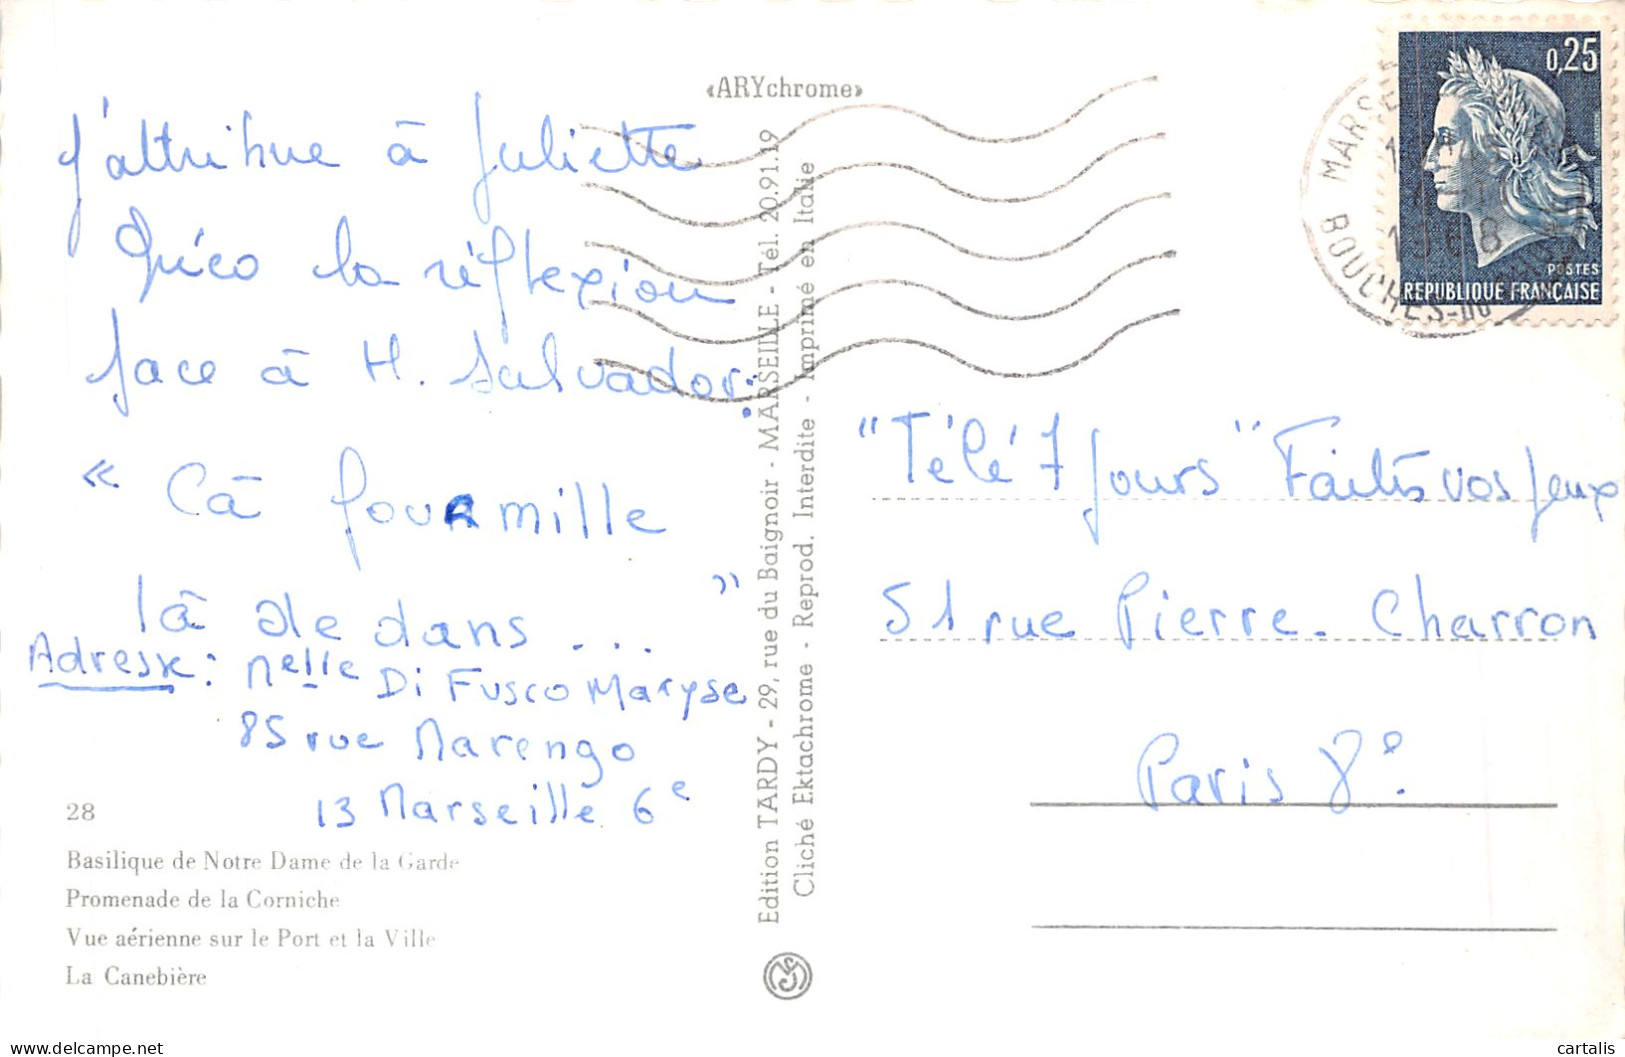 «ARYchrome»
J'attribue à Juliette
Gréco la réflexion
face à H. Salvador :
« Cà fourmille
là dedans... »
Adresse : Melle Di Fusco Maryse
85 rue Marengo
13 Marseille 6e
28
Basilique de Notre Dame de la Garde
Promenade de la Corniche
Vue aérienne sur le Port et la Ville
La Canebière
Edition TARDY - 29, rue du Baignoir - MARSEILLE - Tél. 20.91.19
Cliché Ektachrome - Reprod. Interdite - Imprimé en Italie
0,25
POSTES
REPUBLIQUE FRANÇAISE
1968
BOUCHES-DU
"Télé 7 Jours" Faites vos jeux
51 rue Pierre-Charron
Paris 8e.
cartalis